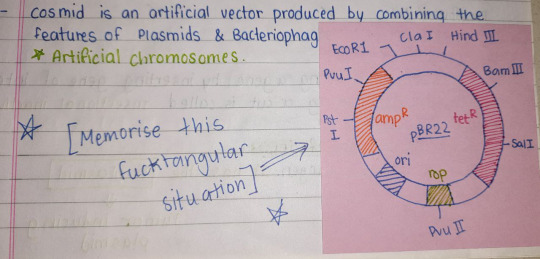 - cosmid is an artificial vector produced by combining the
features of Plasmids & Bacteriophag
* Artificial chromosomes.
[Memorise this
fucktangular
situation]
EcoR1
Cla I
Hind III
Pvu I
BamIII
Pst
I
ampR
tetR
pBR22
SalI
ori
rop
Pvu II